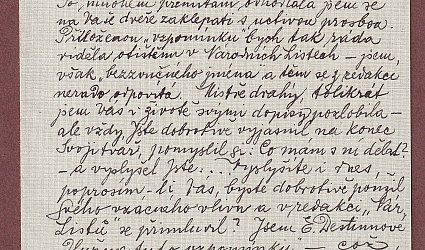 Po mnohém přemítání, odhodlala jsem se
na Vaše dveře zaklepati s uctivou prosbou.
Přiloženou „vzpomínku" bych tak ráda
viděla, otištěnu v Národních Listech – jsem,
však, bezzvučného jména a tem se z redakcí
nerado odpovídá. Mistře drahý, tolikrát
jsem Vás v životě svými dopisy pozlobila –
ale vždy, jste dobrotivě vyjasnil na konec
Svoji tvář, pomyslil si: Co mám s ní dělat?
– a vyslyšel jste... Vyslyšíte i dnes,
poprosím-li Vás, byste dobrotivě použil
Svého vzácného vlivu a v redakci „Nár.
Listů" se přimluvil? Jsem E. Destinnové
tuto vzpomínku – což